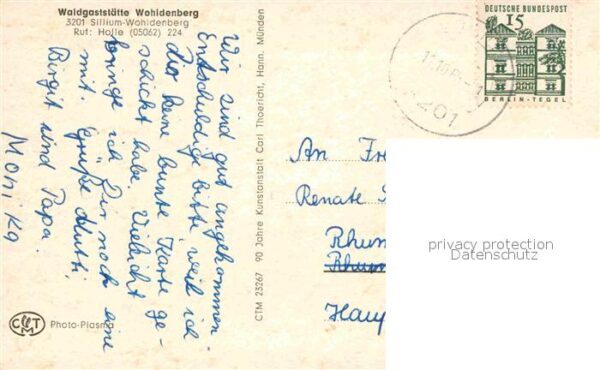 Waldgaststätte Wohldenberg
3201 Sillium-Wohldenberg
Ruf: Holle (05062) 224
Wir sind gut angekommen.
Entschuldige bitte weil ich
Dir keine bunte Karte ge-
schickt habe. Vielleicht
bringe ich Dir noch eine
mit. Grüße Mutti,
Birgit und Papa.
Monika
CTM
Photo-Plasma
CTM 23267 90 Jahre Kunstanstalt Carl Thoericht, Hann. Münden
DEUTSCHE BUNDESPOST
15
BERLIN-TEGEL
3201
An Fre
Renate
Rhum
Rhum
Haup
privacy protection
Datenschutz